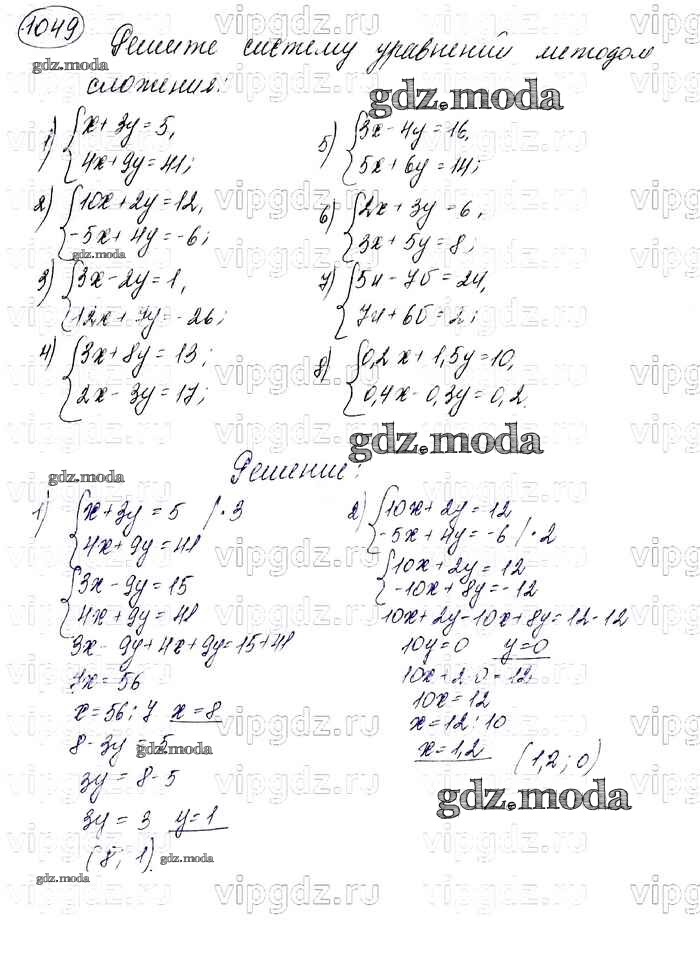 1049
Решите систему уравнений методом
сложения:
gdz.moda
gdz.moda
1) { x + 3y = 5,
4x + 9y = 41;
2) { 10x + 2y = 12,
-5x + 4y = -6;
gdz.moda
3) { 3x - 2y = 1,
12x + 7y = -26;
4) { 3x + 8y = 13;
2x - 3y = 17;
5) { 3x - 4y = 16,
5x + 6y = 14;
6) { 2x + 3y = 6,
3x + 5y = 8;
7) { 5u - 7б = 24,
7u + 6б = 2;
8) { 0,2x + 1,5y = 10,
0,4x - 0,3y = 0,2.
gdz.moda
gdz.moda
Решение:
1) { x + 3y = 5 / · 3
4x + 9y = 41
{ 3x - 9y = 15
4x + 9y = 41
3x - 9y + 4x + 9y = 15 + 41
7x = 56
x = 56 : 7 x = 8
8 - 3y = 5
gdz.moda
3y = 8 - 5
3y = 3 y = 1
(8; 1).
gdz.moda
gdz.moda
2) { 10x + 2y = 12
-5x + 4y = -6 / · 2
{ 10x + 2y = 12
-10x + 8y = -12
10x + 2y - 10x + 8y = 12 - 12
10y = 0 y = 0
10x + 2·0 = 12
10x = 12
x = 12 : 10
x = 1,2 (1,2; 0)
gdz.moda
vipgdz.ru